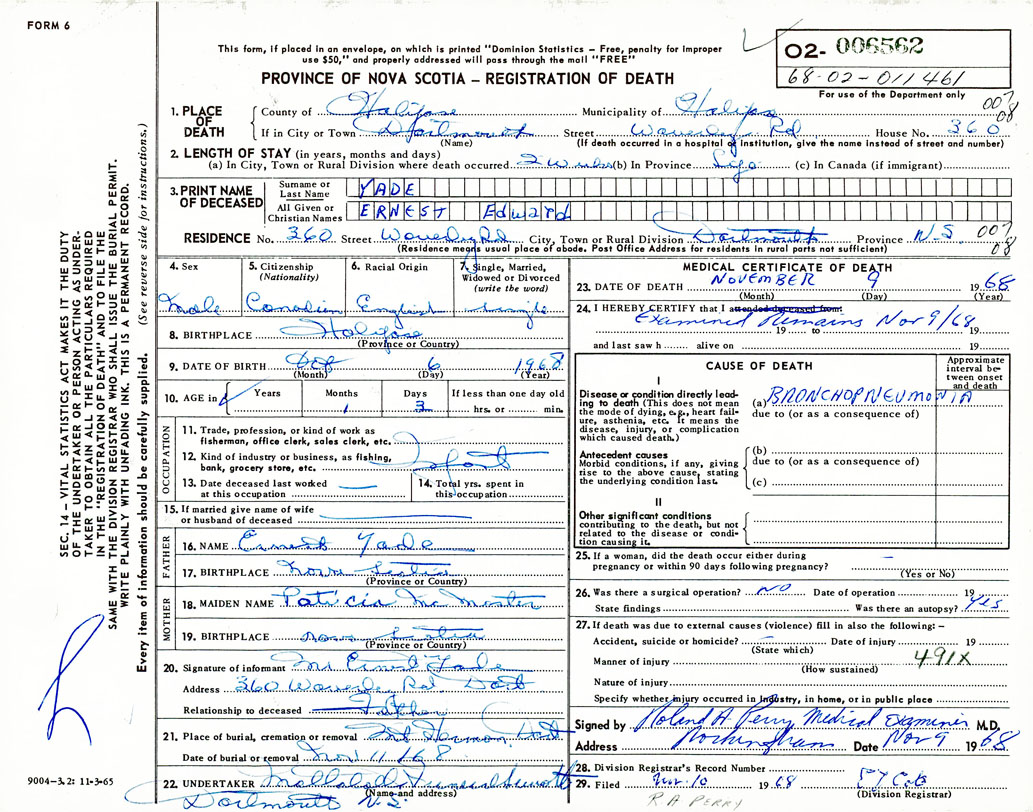 FORM 6
This form, if placed in an envelope, on which is printed "Dominion Statistics – Free, penalty for improper
use $50," and properly addressed will pass through the mail "FREE"
O2- 006562
68-02-011461
For use of the Department only
PROVINCE OF NOVA SCOTIA – REGISTRATION OF DEATH
007
08
1. PLACE OF DEATH
County of Halifax Municipality of Halifax
If in City or Town Dartmouth Street Waverley Rd House No. 360
(Name) (If death occurred in a hospital or institution, give the name instead of street and number)
2. LENGTH OF STAY (in years, months and days)
(a) In City, Town or Rural Division where death occurred 2 Weeks (b) In Province Life (c) In Canada (if immigrant)
3. PRINT NAME OF DECEASED
Surname or Last Name YADE
All Given or Christian Names ERNEST Edward
RESIDENCE No. 360 Street Waverley Rd City, Town or Rural Division Dartmouth Province N.S. 007
08
(Residence means usual place of abode. Post Office Address for residents in rural ports not sufficient)
4. Sex
Male
5. Citizenship
(Nationality)
Canadian
6. Racial Origin
English
7. Single, Married,
Widowed or Divorced
(write the word)
single
8. BIRTHPLACE Halifax
(Province or Country)
9. DATE OF BIRTH Oct 6 1968
(Month) (Day) (Year)
10. AGE in Years Months Days If less than one day old
1 3 hrs. or min.
OCCUPATION
11. Trade, profession, or kind of work as
fisherman, office clerk, sales clerk, etc.
12. Kind of industry or business, as fishing,
bank, grocery store, etc. Infant
13. Date deceased last worked
at this occupation
14. Total yrs. spent in
this occupation
15. If married give name of wife
or husband of deceased
FATHER
16. NAME Ernest Yade
17. BIRTHPLACE Nova Scotia
(Province or Country)
MOTHER
18. MAIDEN NAME Patricia
19. BIRTHPLACE Nova Scotia
(Province or Country)
20. Signature of informant Mr Ernest Yade
Address 360 Waverley Rd. Dart
Relationship to deceased Father
21. Place of burial, cremation or removal Mt Hermon, Dart
Date of burial or removal Nov 11/68
22. UNDERTAKER Funeral
(Name and address)
Dartmouth N.S.
MEDICAL CERTIFICATE OF DEATH
23. DATE OF DEATH NOVEMBER 9 1968
(Month) (Day) (Year)
24. I HEREBY CERTIFY that I attended deceased from:
Examined Remains Nov 9/68
19 to 19
and last saw h alive on 19
CAUSE OF DEATH
Approximate
interval be-
tween onset
and death
I
Disease or condition directly lead-
ing to death (This does not mean
the mode of dying, e.g., heart fail-
ure, asthenia, etc. It means the
disease, injury, or complication
which caused death.)
(a) BRONCHOPNEUMONIA
due to (or as a consequence of)
Antecedent causes
Morbid conditions, if any, giving
rise to the above cause, stating
the underlying condition last.
(b)
due to (or as a consequence of)
(c)
II
Other significant conditions
contributing to the death, but not
related to the disease or condi-
tion causing it.
25. If a woman, did the death occur either during
pregnancy or within 90 days following pregnancy?
(Yes or No)
26. Was there a surgical operation? NO Date of operation 19
State findings Was there an autopsy? Yes
27. If death was due to external causes (violence) fill in also the following: –
Accident, suicide or homicide? Date of injury 19
(State which)
Manner of injury 491X
(How sustained)
Nature of injury
Specify whether injury occurred in industry, in home, or in public place
Signed by Roland A. Perry Medical Examiner M.D.
Address Rockingham Date Nov 9 1968
28. Division Registrar's Record Number
29. Filed Nov. 10 1968
(Division Registrar)
R A PERRY
SEC. 14 – VITAL STATISTICS ACT MAKES IT THE DUTY
OF THE UNDERTAKER OR PERSON ACTING AS UNDER-
TAKER TO OBTAIN ALL THE PARTICULARS REQUIRED
IN THE "REGISTRATION OF DEATH" AND TO FILE THE
SAME WITH THE DIVISION REGISTRAR WHO SHALL ISSUE THE BURIAL PERMIT.
WRITE PLAINLY WITH UNFADING INK. THIS IS A PERMANENT RECORD.
Every item of information should be carefully supplied. (See reverse side for instructions.)
9004-3.2: 11-3-65